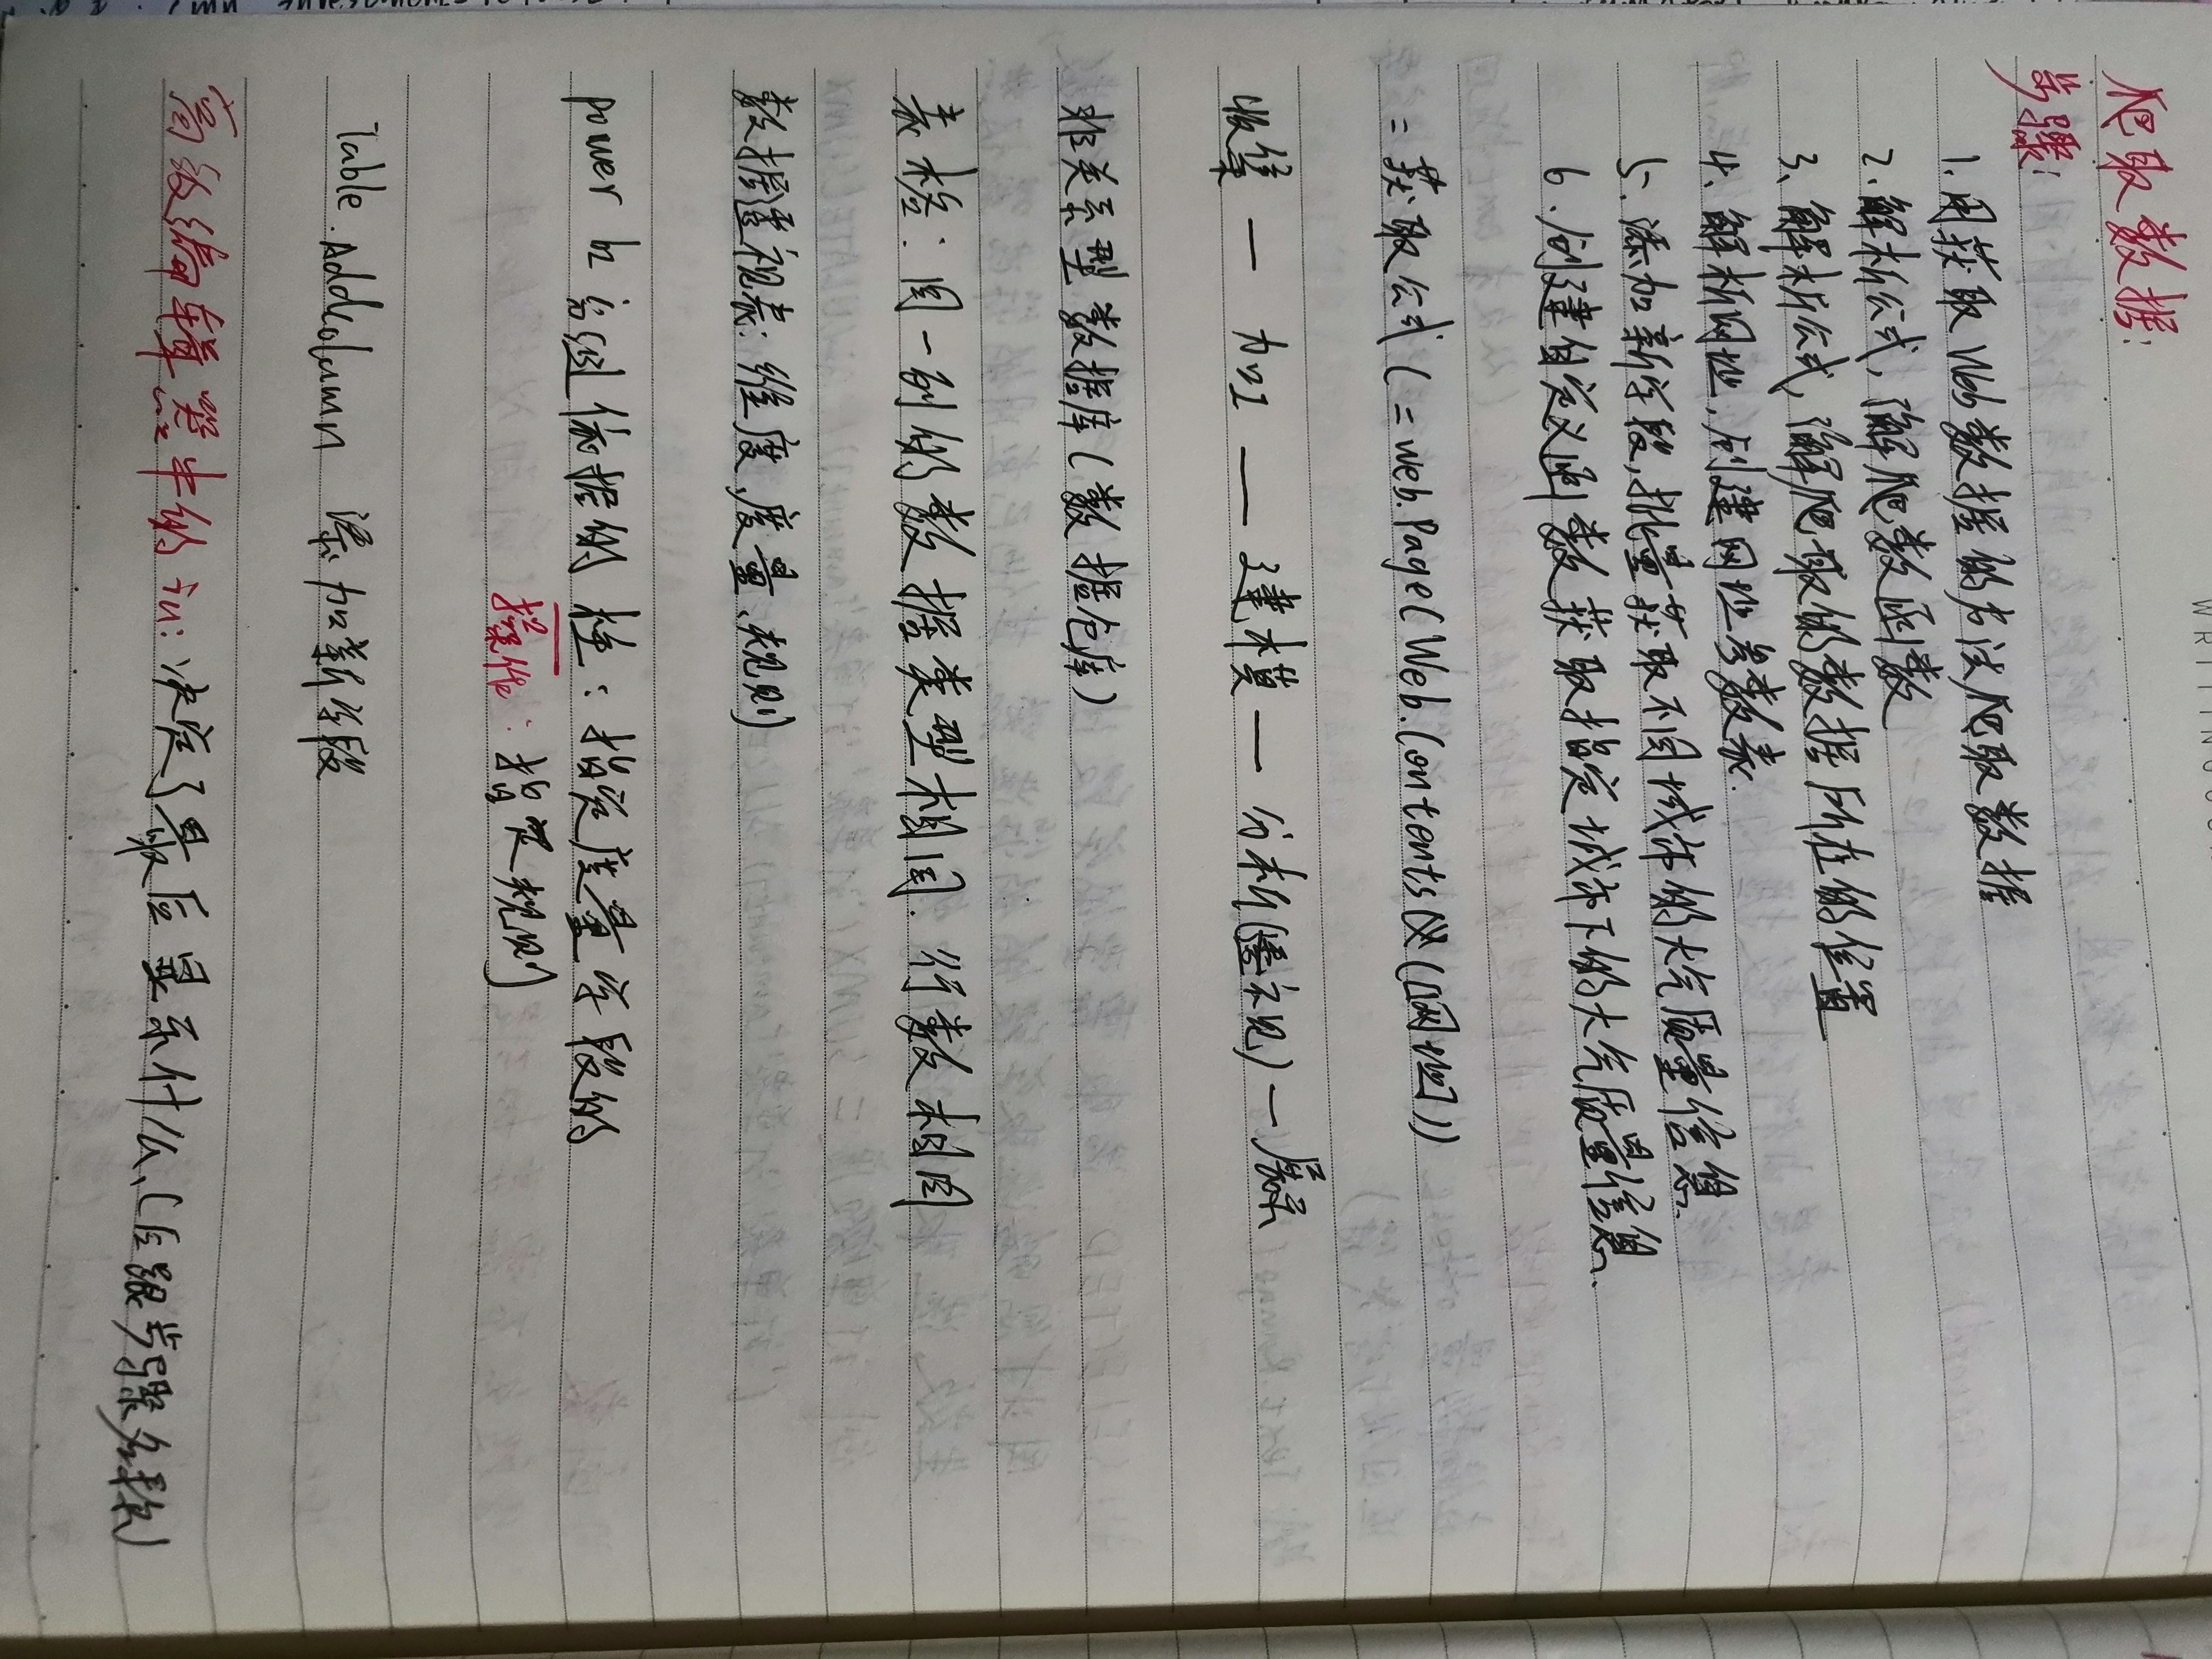 爬取数据:
步骤:
1.用获取Web数据的方法爬取数据
2.解析公式,了解爬数函数
3、解析公式,了解爬取的数据所在的位置
4、解析网址,创建网址参数表.
5.添加新字段,批量获取不同城市的大气质量信息.
6.创建自定义函数获取指定城市下的大气质量信息.
= 获取公式(=web.Page(Web.Contents(网址)))
收集 — 加工 — 建模 — 分析(透视) — 展示
非关系型数据库(数据仓库)
表格:同一列的数据类型相同.行数相同
数据透视表:维度,度量、规则)
power bi 分组依据的 柱:指定度量字段的
操作:指定规则)
Table.Addcolumn 添加新字段
高级编辑器中的in:决定了最后显示什么、(后跟步骤名称)